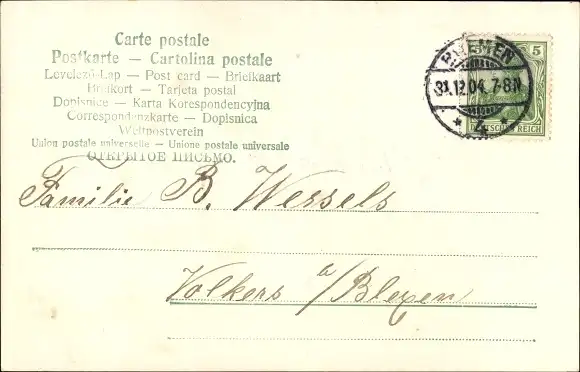 Carte postale
Postkarte — Cartolina postale
Levelező-Lap — Post card — Briefkaart
Brefkort — Tarjeta postal
Dopisnice — Karta Korespondencyjna
Correspondenzkarte — Dopisnica
Weltpostverein
Union postale universelle — Unione postale universale
ОТКРЫТОЕ ПИСЬМО.
5 5
BREMEN
31.12.04. 7-8N
* 4 *
DEUTSCHES REICH
Familie B. Wessels
Volkers a/Blexen